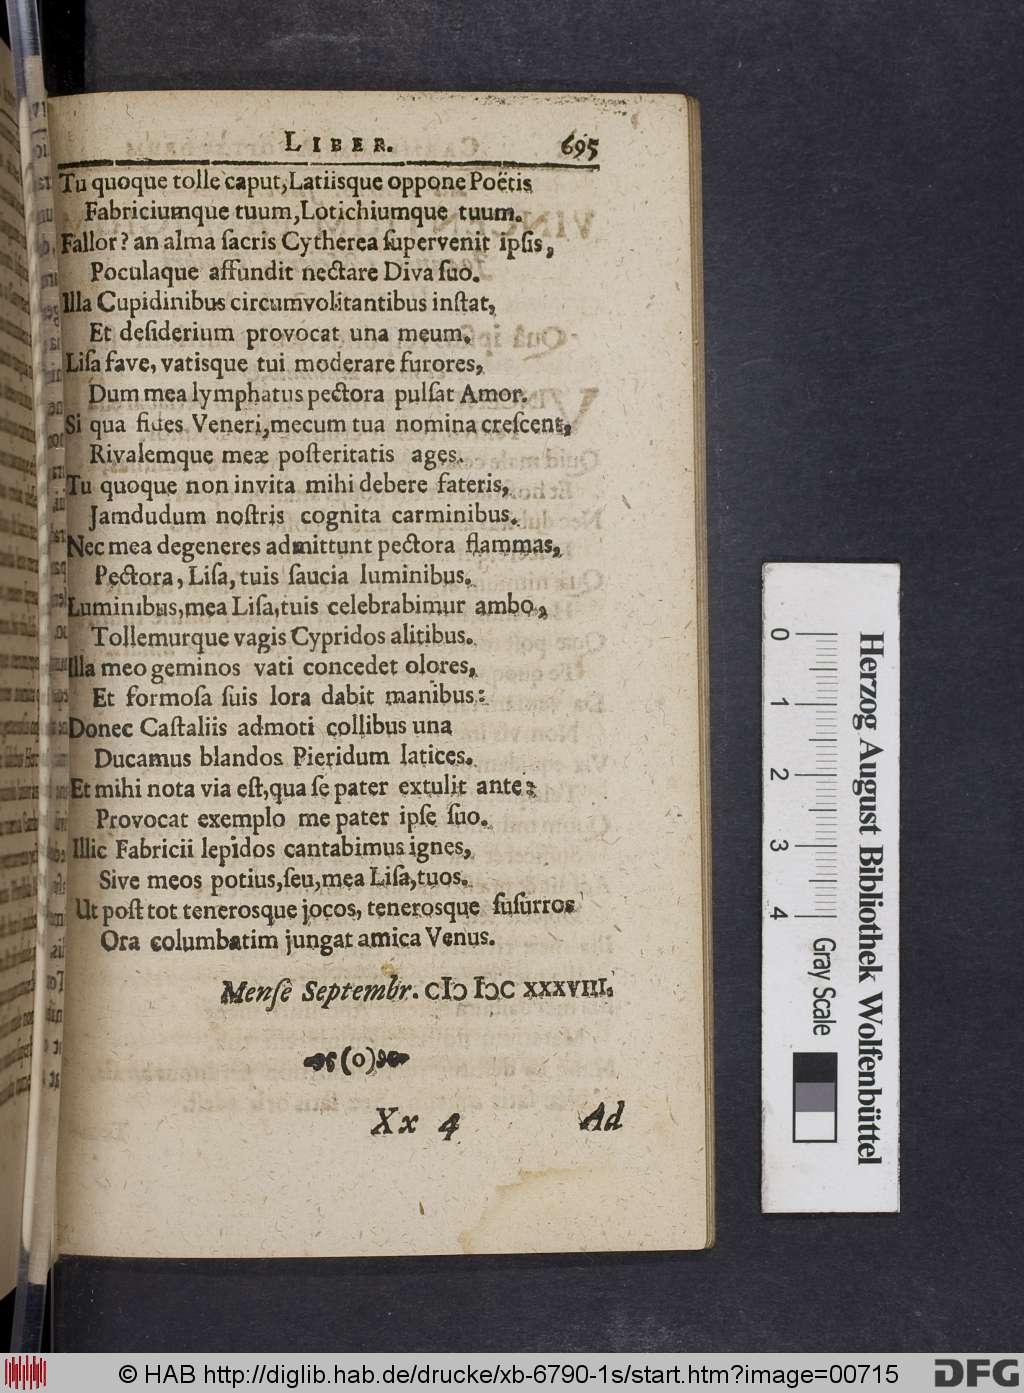 LIBER. 695
Tu quoque tolle caput, Latiisque oppone Poëtis
Fabriciumque tuum, Lotichiumque tuum.
Fallor? an alma ſacris Cytherea ſupervenit ipſis,
Poculaque affundit nectare Diva ſuo.
Illa Cupidinibus circumvolitantibus inſtat,
Et deſiderium provocat una meum.
Liſa fave, vatisque tui moderare furores,
Dum mea lymphatus pectora pulſat Amor.
Si qua fides Veneri, mecum tua nomina creſcent,
Rivalemque meæ poſteritatis ages.
Tu quoque non invita mihi debere fateris,
Jamdudum noſtris cognita carminibus.
Nec mea degeneres admittunt pectora flammas,
Pectora, Liſa, tuis ſaucia luminibus.
Luminibus, mea Liſa, tuis celebrabimur ambo,
Tollemurque vagis Cypridos alitibus.
Illa meo geminos vati concedet olores,
Et formoſa ſuis lora dabit manibus:
Donec Caſtaliis admoti collibus una
Ducamus blandos Pieridum latices.
Et mihi nota via eſt, qua ſe pater extulit ante:
Provocat exemplo me pater ipſe ſuo.
Illic Fabricii lepidos cantabimus ignes,
Sive meos potius, ſeu, mea Liſa, tuos.
Ut poſt tot tenerosque jocos, tenerosque ſuſurros
Ora columbatim jungat amica Venus.
Menſe Septembr. CIↃ IↃC XXXVIII.
(o)
Xx 4 Ad
0 1 2 3 4
Gray Scale
Herzog August Bibliothek Wolfenbüttel
© HAB http://diglib.hab.de/drucke/xb-6790-1s/start.htm?image=00715
DFG